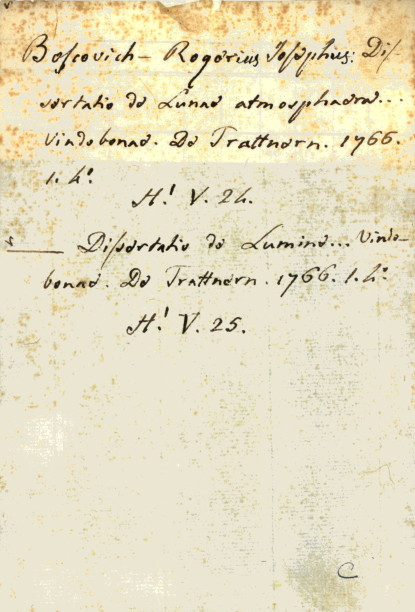 Boſcovich - Rogerius Joſephus: Diſ-
sertatio de Lunae atmosphaera...
Vindobonae. De Trattnern. 1766.
1. 4°.
H! V. 24.
—— Diſsertatio de Lumine... Vindo-
bonae. De Trattnern. 1766. 1. 4°.
H! V. 25.
C